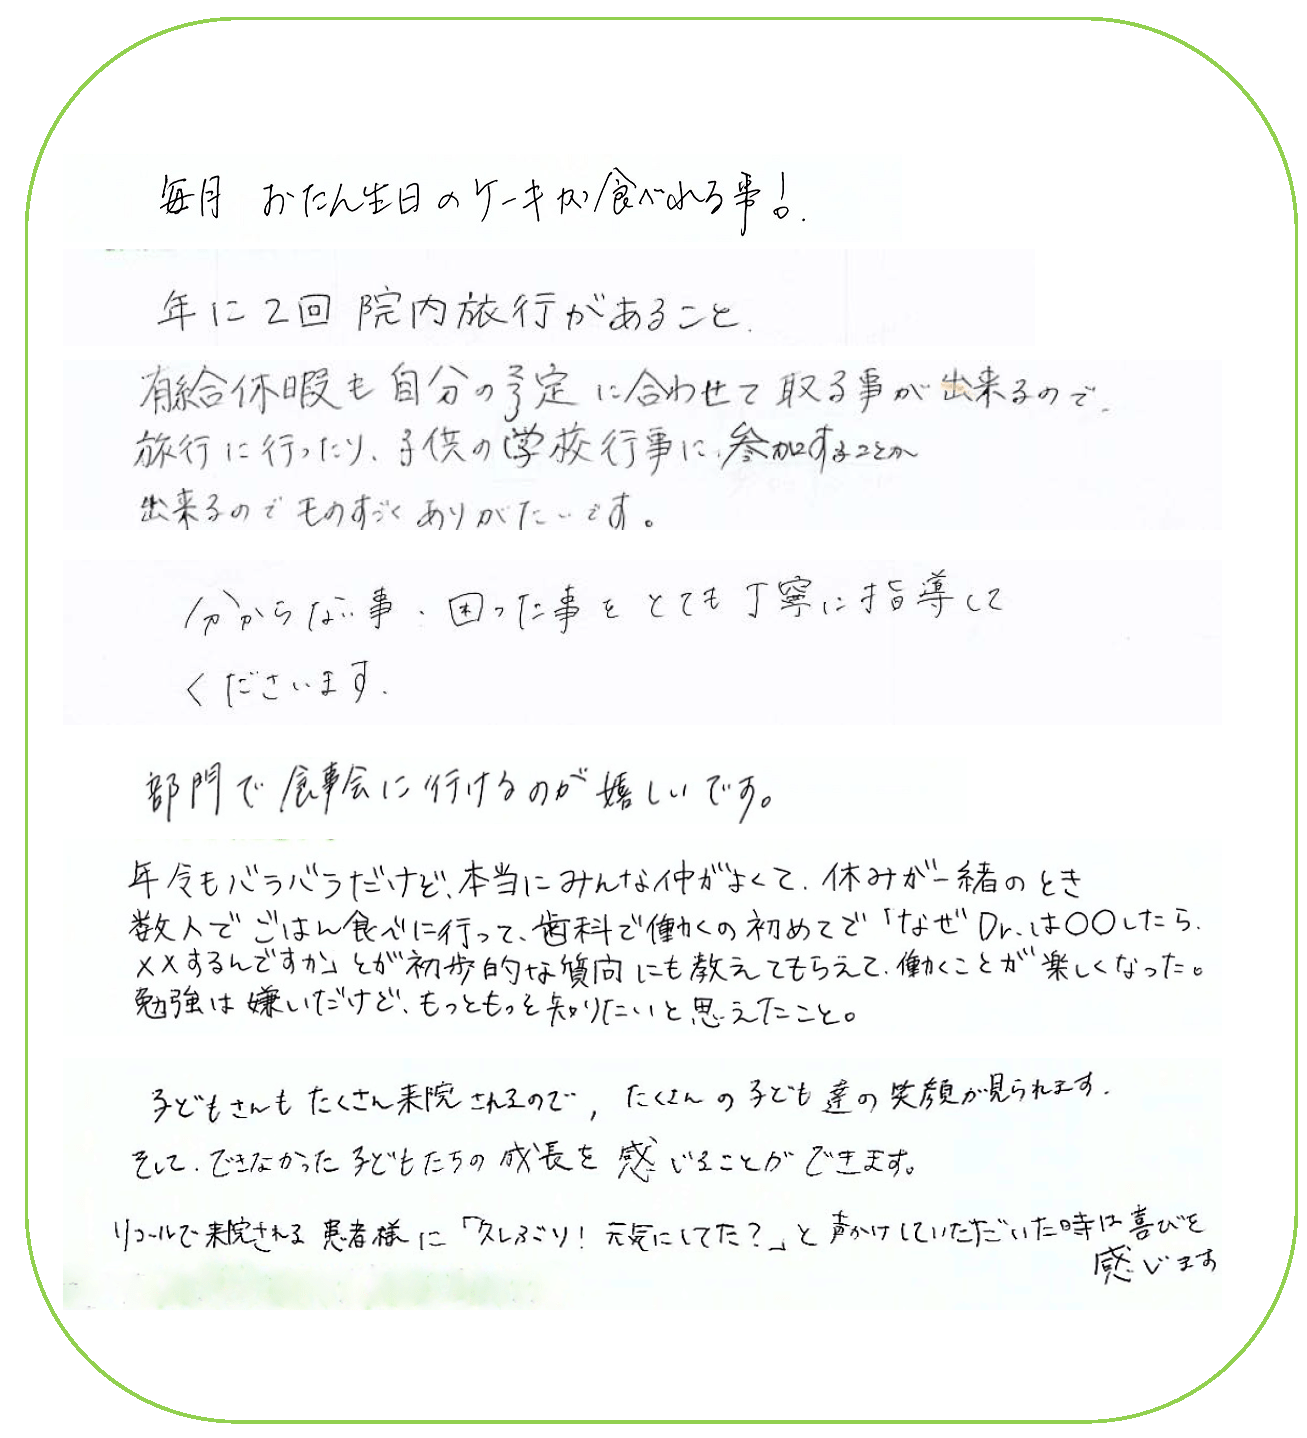 毎月 おたん生日のケーキが食べれる事!。
年に2回 院内旅行があること.
有給休暇も自分の予定に合わせて取る事が出来るので.
旅行に行ったり、子供の学校行事に、参加することが
出来るのでものすごくありがたいです。
分からない事・困った事をとても丁寧に指導して
くださいます.
部門で食事会に行けるのが嬉しいです。
年令もバラバラだけど、本当にみんな仲がよくて、休みが一緒のとき
数人でごはん食べに行って、歯科で働くの初めてで「なぜDr.は〇〇したら、
××するんですか」とか初歩的な質向にも教えてもらえて、働くことが楽しくなった。
勉強は嫌いだけど、もっともっと知りたいと思えたこと。
子どもさんもたくさん来院されるので, たくさんの子ども達の笑顔が見られます.
そして、できなかった子どもたちの成長を感じることができます。
リコールで来院される患者様に「久しぶり!元気にしてた?」と声かけしていただいた時は喜びを
感じます